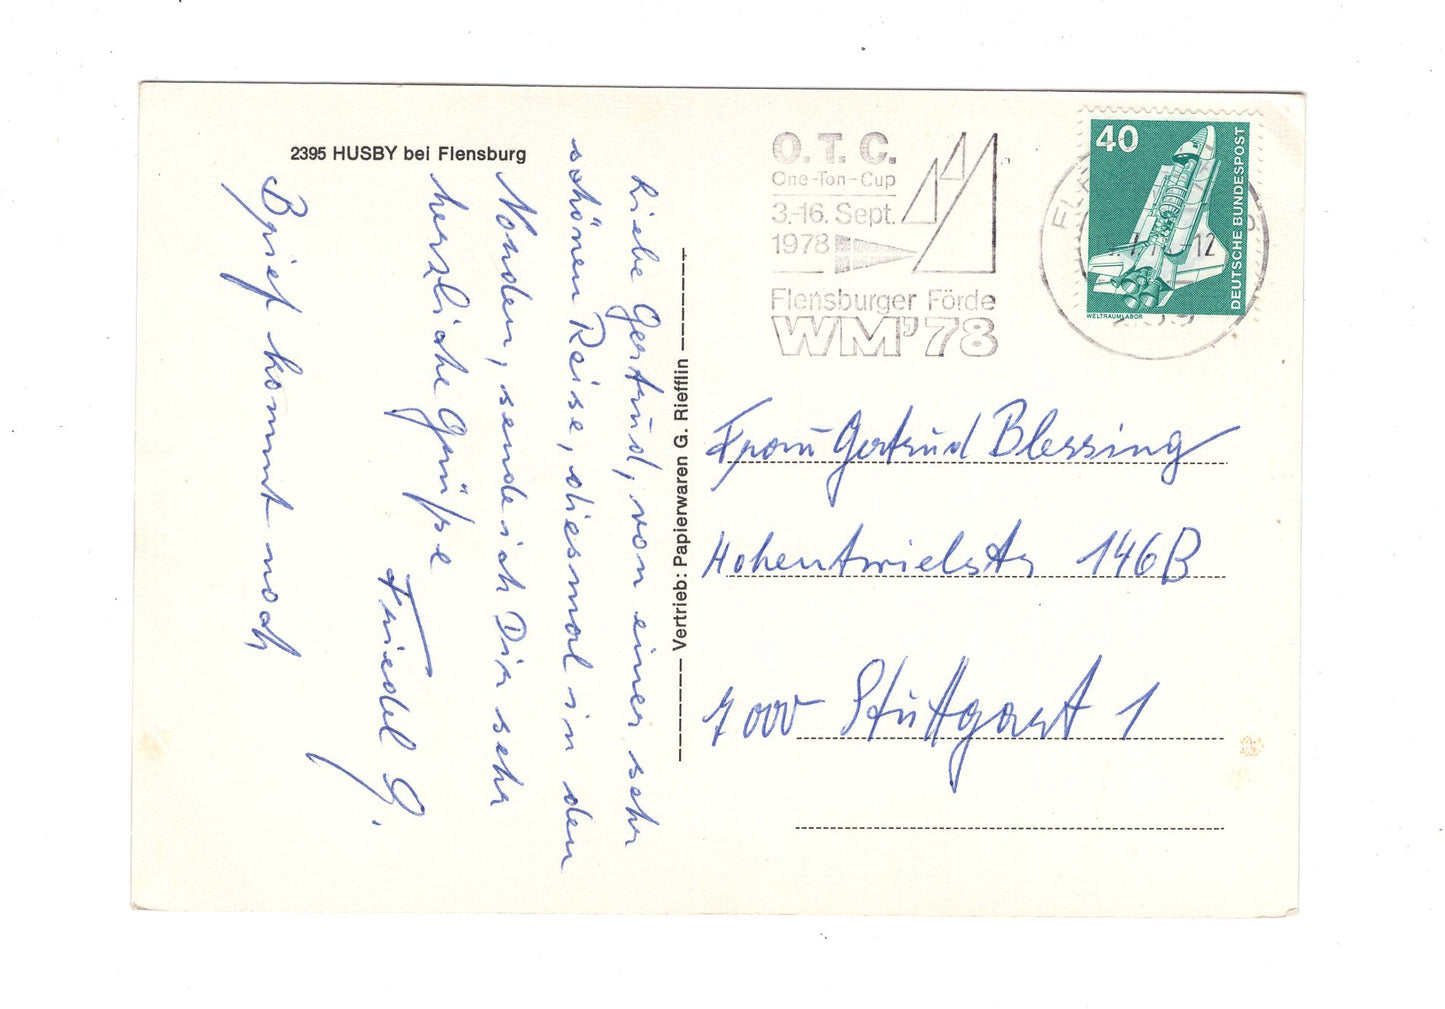 2395 HUSBY bei Flensburg
Liebe Gertrud, von einer sehr
schönen Reise, diesmal in den
Norden, sende ich Dir sehr
herzliche Grüße
Friedel G.
Brief kommt noch
Vertrieb: Papierwaren G. Riefflin
O.T.C.
One-Ton-Cup
3.-16. Sept.
1978
Flensburger Förde
WM'78
40
DEUTSCHE BUNDESPOST
WELTRAUMLABOR
12
Frau Gertrud Blessing
Hohentwielstr 146B
7000 Stuttgart 1